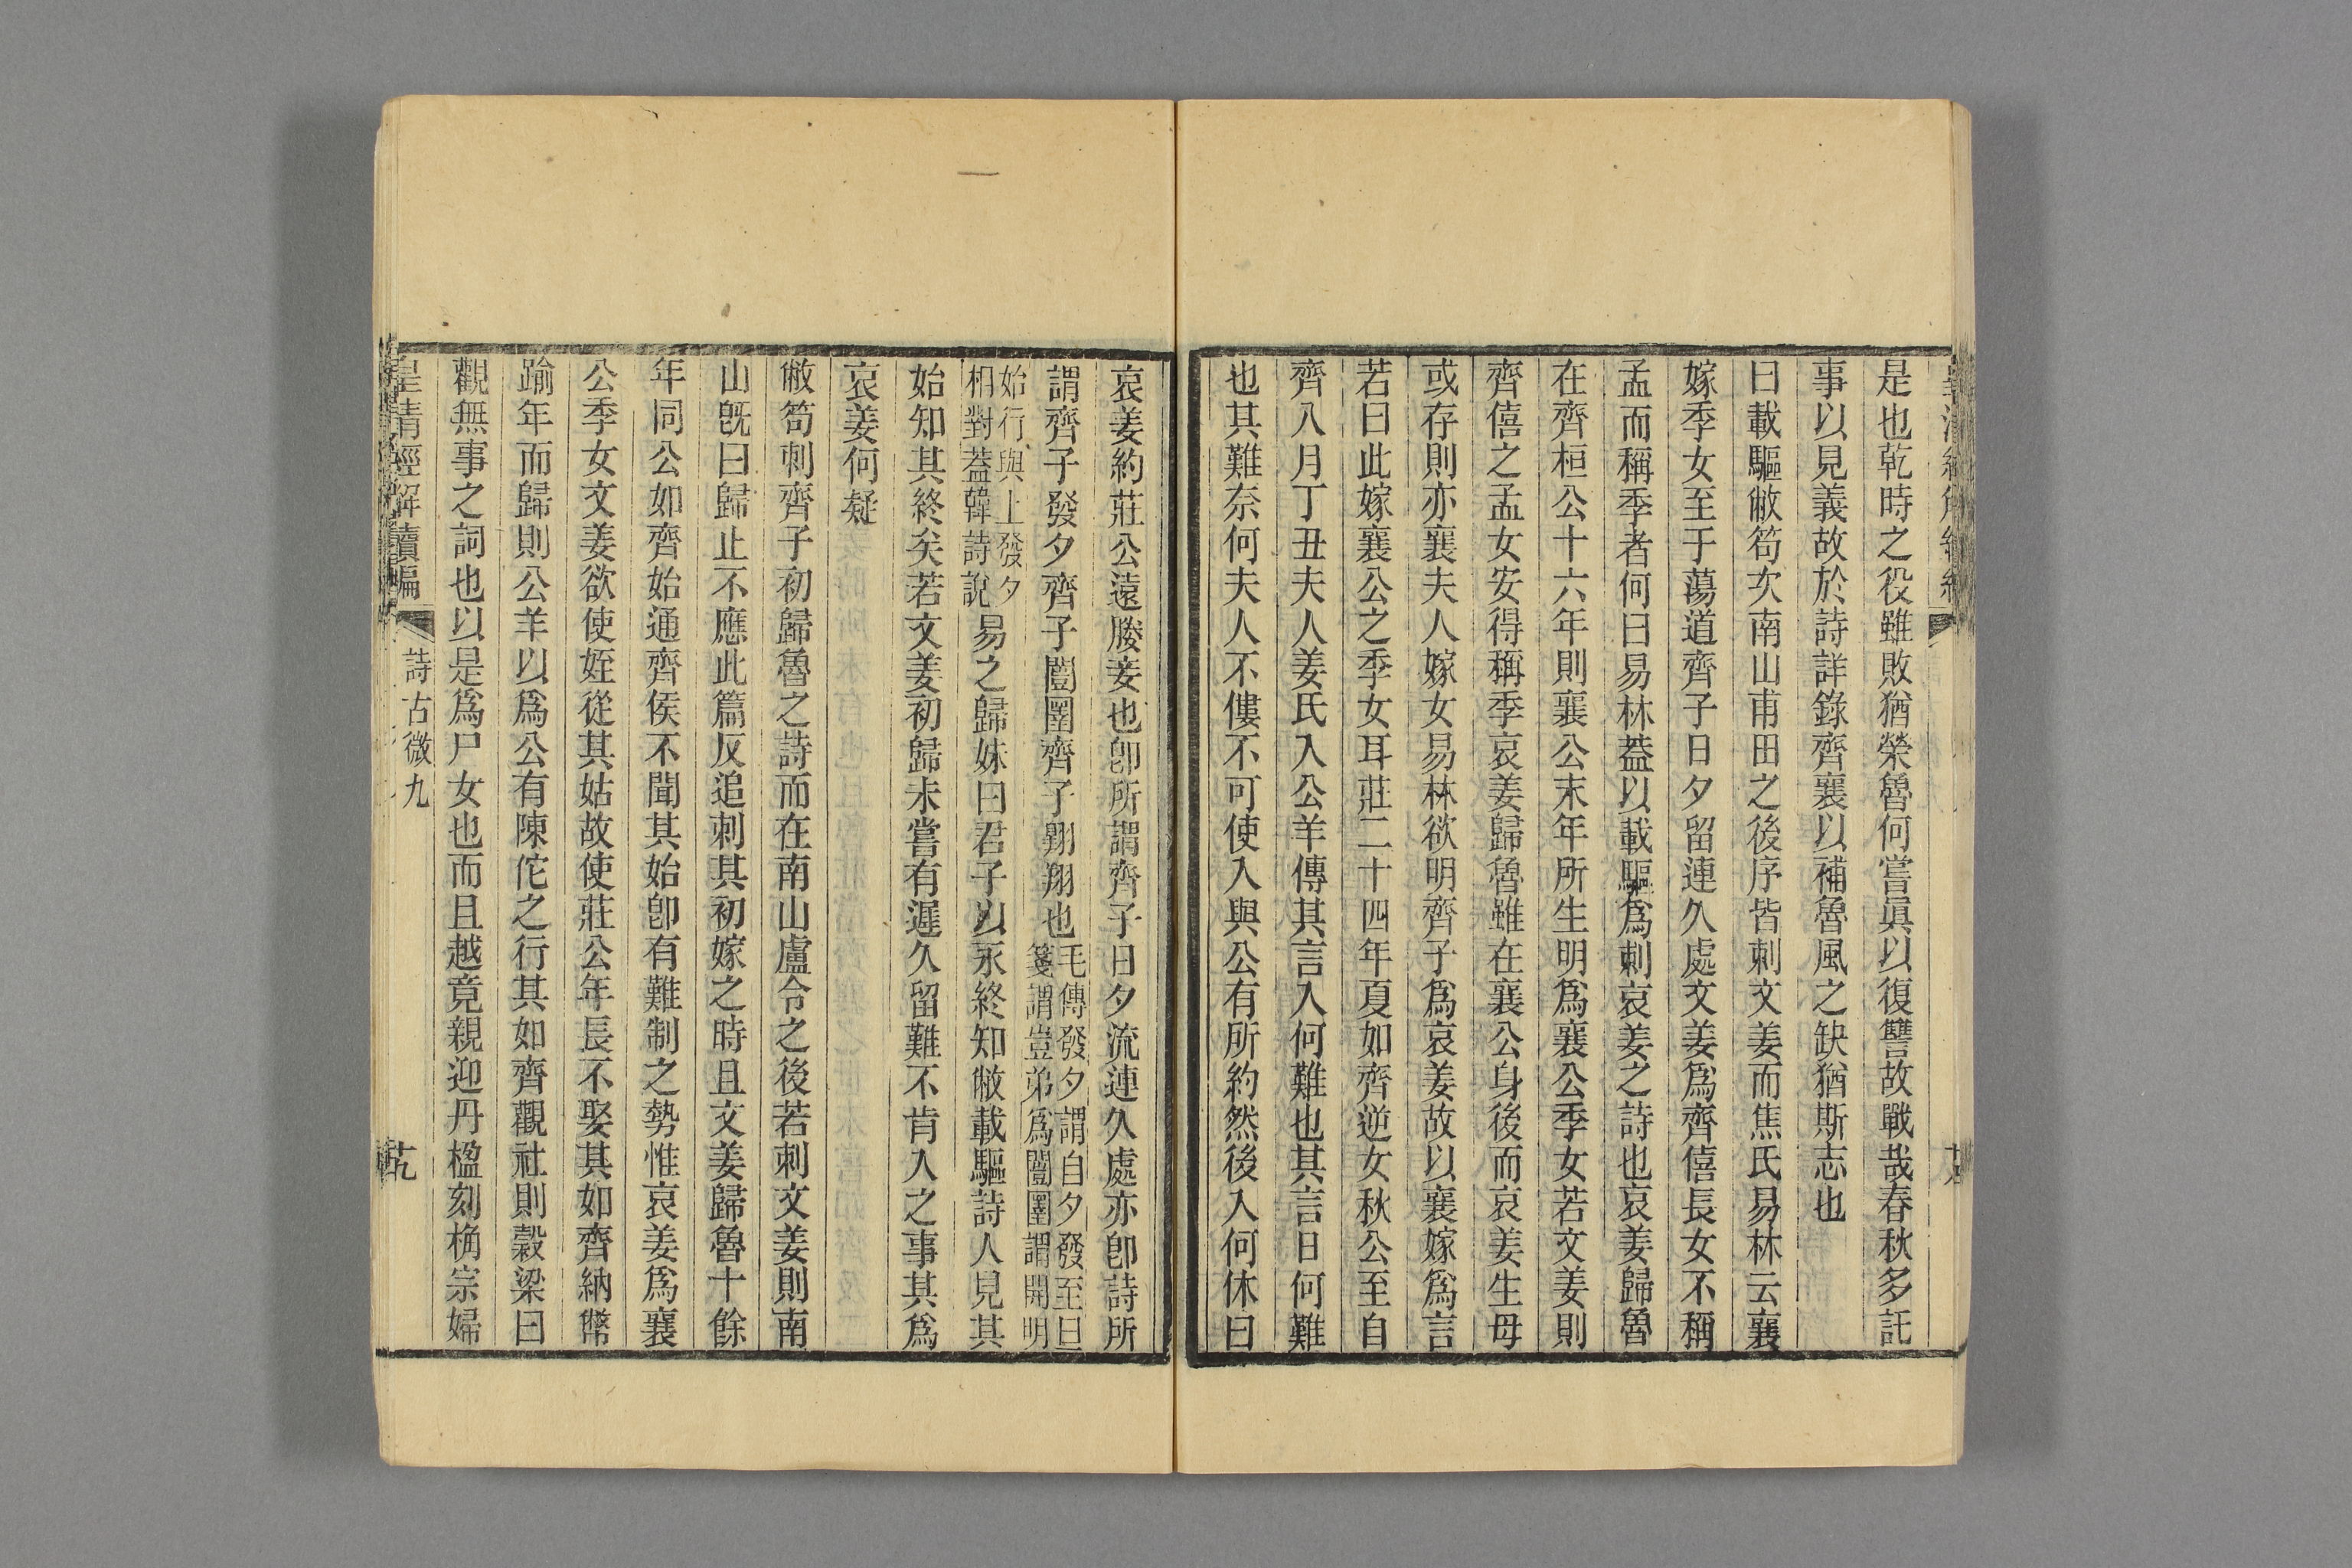 是也乾時之役雖敗猶榮魯何嘗眞以復讐故戰哉春秋多託
事以見義故於詩詳錄齊襄以補魯風之缺猶斯志也
曰載驅敝笱次南山甫田之後序皆刺文姜而焦氏易林云襄
嫁季女至于蕩道齊子日夕留連久處文姜爲齊僖長女不稱
孟而稱季者何曰易林葢以載驅爲刺哀姜之詩也哀姜歸魯
在齊桓公十六年則襄公末年所生明爲襄公季女若文姜則
齊僖之孟女安得稱季哀姜歸魯雖在襄公身後而哀姜生母
或存則亦襄夫人嫁女易林欲明齊子爲哀姜故以襄嫁爲言
若曰此嫁襄公之季女耳莊二十四年夏如齊逆女秋公至自
齊八月丁丑夫人姜氏入公羊傳其言入何難也其言日何難
也其難奈何夫人不僂不可使入與公有所約然後入何休曰
哀姜約莊公遠媵妾也卽所謂齊子日夕流連久處亦卽詩所
謂齊子發夕齊子闓圛齊子翺翔也毛傳發夕謂自夕發至旦
箋謂豈弟爲闓圛謂開明
始行與上發夕
相對葢韓詩說易之歸妹曰君子以永終知敝載驅詩人見其
始知其終矣若文姜初歸未嘗有遲久留難不肯入之事其爲
哀姜何疑
敝笱刺齊子初歸魯之詩而在南山盧令之後若刺文姜則南
山旣曰歸止不應此篇反追刺其初嫁之時且文姜歸魯十餘
年同公如齊始通齊侯不聞其始卽有難制之勢惟哀姜爲襄
公季女文姜欲使姪從其姑故使莊公年長不娶其如齊納幣
踰年而歸則公羊以爲公有陳佗之行其如齊觀社則穀梁曰
觀無事之詞也以是爲尸女也而且越竟親迎丹楹刻桷宗婦
皇清經解續編
詩古微九